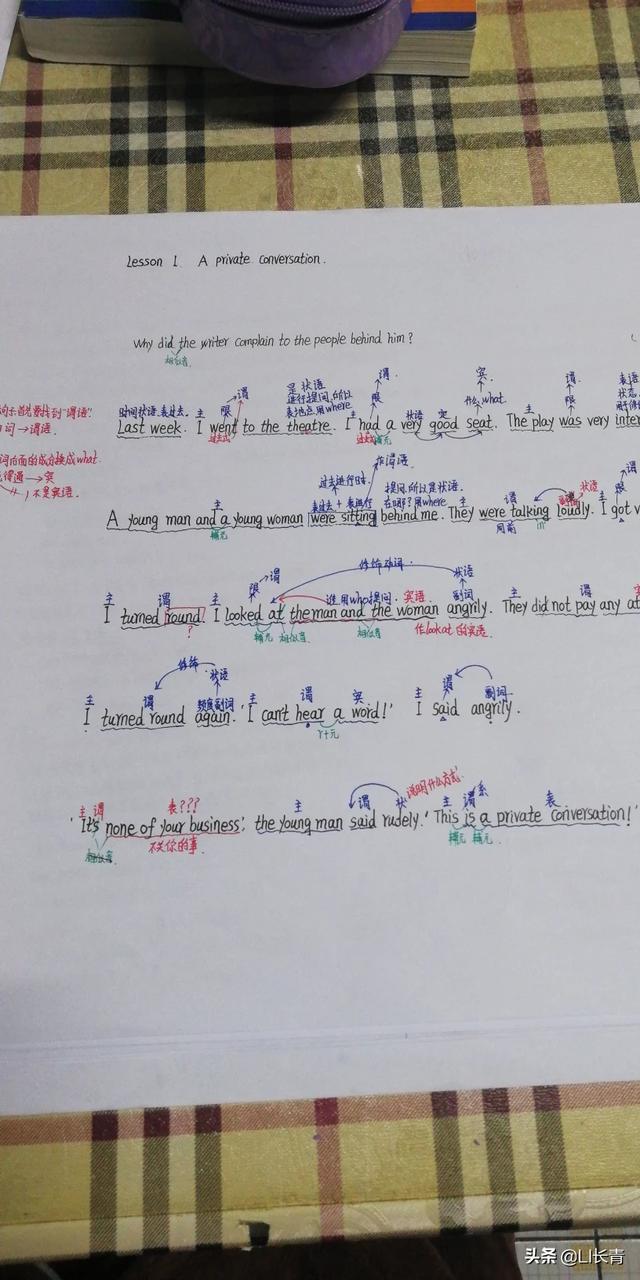 Lesson 1 A private conversation.
Why did the writer complain to the people behind him?
相似音
谓
是状语
谓
宾
谓
表语
时间状语,表过去. 主 限
进行提问,所以
限
什么what
限
状态
表地点用where
状语 宾
主
Last week. I went to the theatre. I had a very good seat. The play was very inter
过去式
过去式 辅元
词→谓语.
词后面的成分换成what.
→宾
不是宾语.
作谓语
过去进行时.
提问,所以是状语.
谓
状语
谓
主
表过去+表进行
在哪? 用where
主
副词
主 限
A young man and a young woman were sitting behind me. They were talking loudly. I got v
辅元
同前
修饰动词.
谓
状语
主 谓 主 限
谁用who提问. 宾语
副词
主 谓
I turned round. I looked at the man and the woman angrily. They did not pay any at
?
辅元 相似音
相似音
作look at 的宾语
修饰
状语
主 谓 频度副词 主 谓 宾 主 谓 副词
I turned round again. 'I can't hear a word!' I said angrily.
r+元
说明什么方式
主 谓 表??? 主 谓 状 主 谓 系 表
'It's none of your business', the young man said rudely.' This is a private conversation!'
相似音
不关你的事.
辅元 辅元
头条 @LI长青